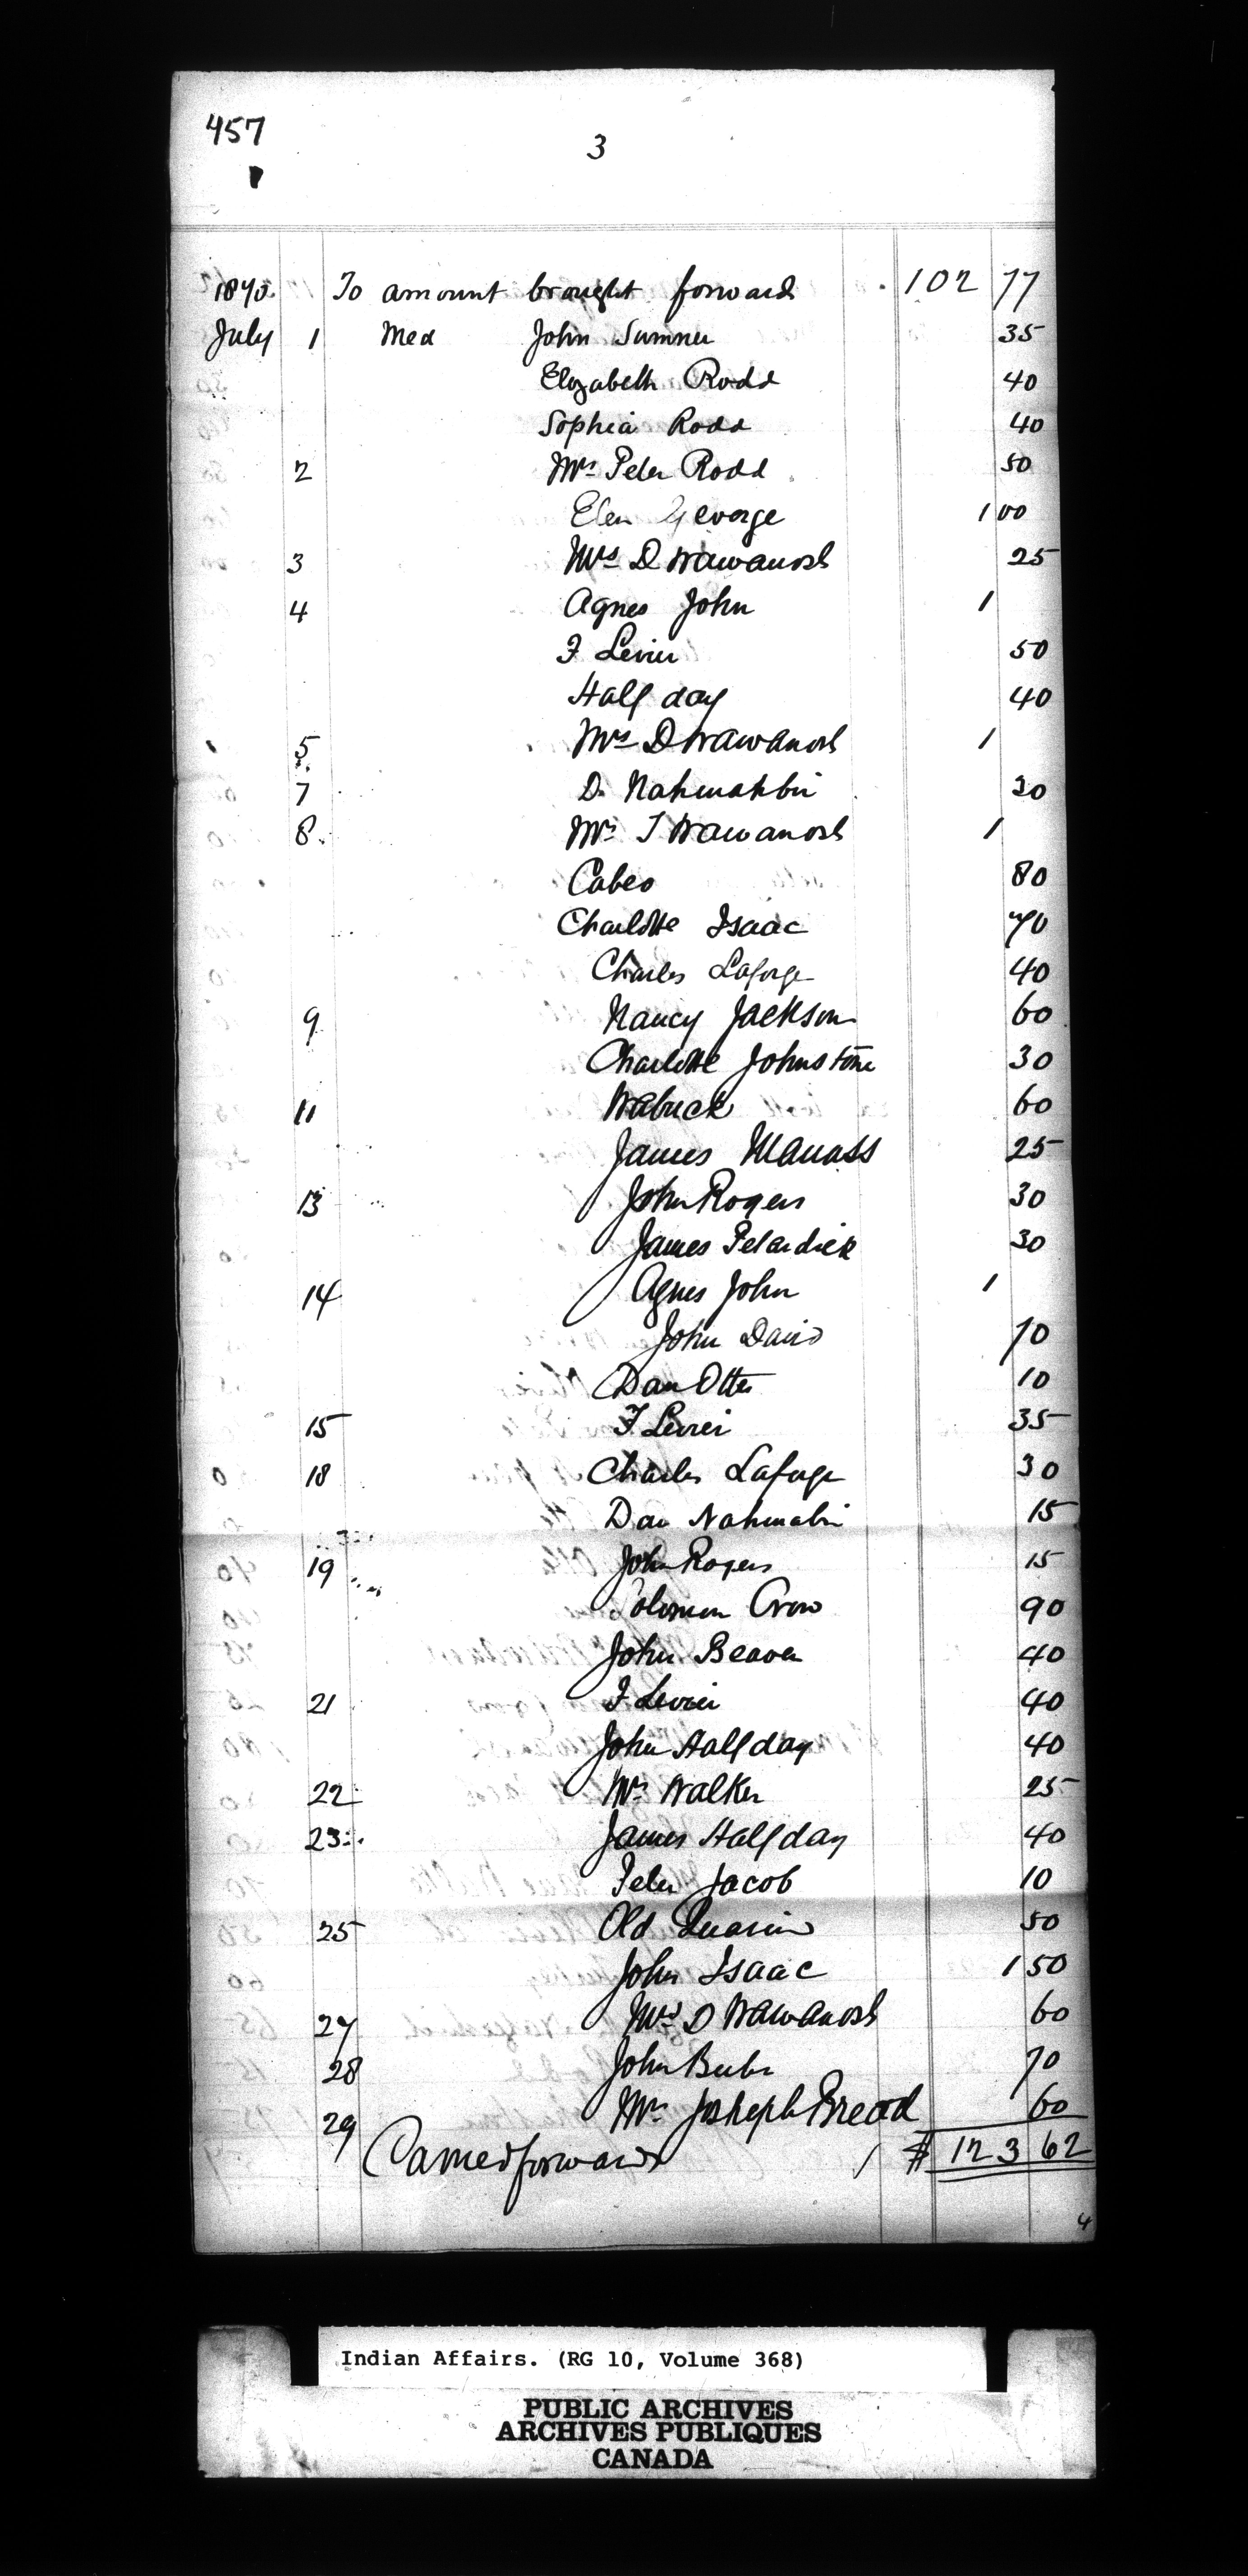 457
3
1870. To amount brought forward 102 77
July 1 Med John Sumner 35
Elizabeth Rodd 40
Sophia Rodd 40
2 Mrs Peter Rodd 50
Elen George 1 00
3 Mrs D Wawanosh 25
4 Agnes John 1
F Levier 50
Half day 40
5 Mrs D Wawanosh 1
7 D. Nahmahbin 30
8. Mrs J Wawanosh 1
Cabeo 80
Charlotte Isaac 70
Charles Laforge 40
9 Nancy Jackson 60
Charlotte Johnstone 30
11 Wabuck 60
James Manass 25
13 John Rogers 30
James Petardick 30
14 Agnes John 1
John David 70
Dan Otter 10
15 F Levier 35
18 Charles Laforge 30
Dan Nahmabin 15
19 John Rogers 15
Solomon Crow 90
John Beaver 40
21 F Levier 40
John Half day 40
22 Mrs Walker 25
23 James Half day 40
Peter Jacob 10
25 Old 50
John Isaac 1 50
27 Mrs D Wawanosh 60
28 John 70
29 Mrs Joseph Bread 60
Carried forward $ 123 62
4
Indian Affairs. (RG 10, Volume 368)
PUBLIC ARCHIVES
ARCHIVES PUBLIQUES
CANADA